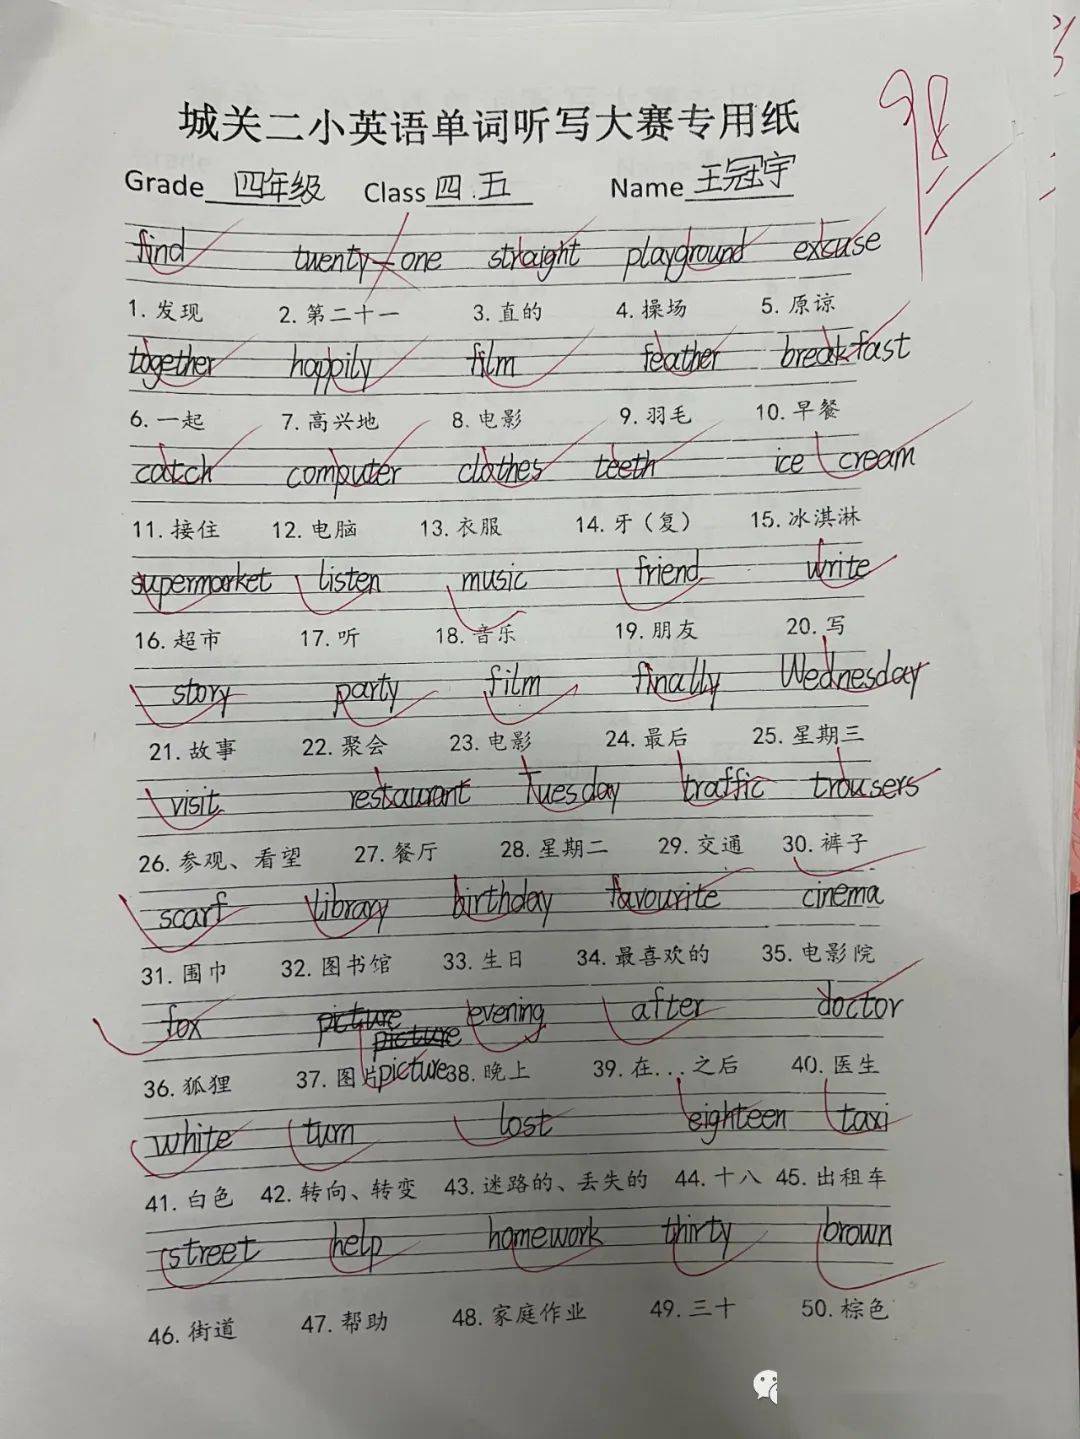 98
城关二小英语单词听写大赛专用纸
Grade 四年级 Class 四.五 Name 王冠宇
find twenty-one straight playground excuse
1. 发现 2. 第二十一 3. 直的 4. 操场 5. 原谅
together happily film feather breakfast
6. 一起 7. 高兴地 8. 电影 9. 羽毛 10. 早餐
catch computer clothes teeth ice cream
11. 接住 12. 电脑 13. 衣服 14. 牙（复） 15. 冰淇淋
supermarket listen music friend write
16. 超市 17. 听 18. 音乐 19. 朋友 20. 写
story party film finally Wednesday
21. 故事 22. 聚会 23. 电影 24. 最后 25. 星期三
visit restaurant Tuesday traffic trousers
26. 参观、看望 27. 餐厅 28. 星期二 29. 交通 30. 裤子
scarf library birthday favourite cinema
31. 围巾 32. 图书馆 33. 生日 34. 最喜欢的 35. 电影院
fox picture evening after doctor
picture
36. 狐狸 37. 图片 picture 38. 晚上 39. 在...之后 40. 医生
white turn lost eighteen taxi
41. 白色 42. 转向、转变 43. 迷路的、丢失的 44. 十八 45. 出租车
street help homework thirty brown
46. 街道 47. 帮助 48. 家庭作业 49. 三十 50. 棕色